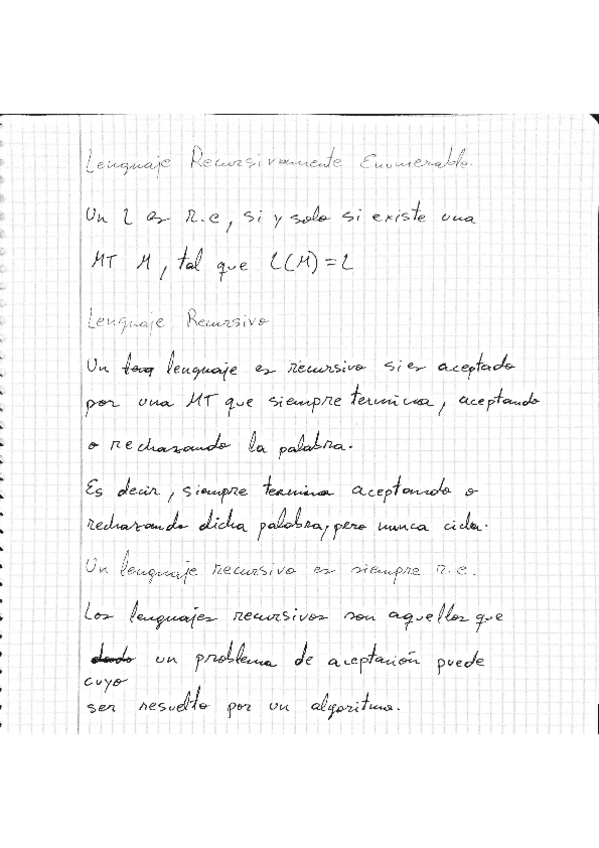 Lenguaje Recursivamente Enumerable.
Un L es r.e, si y solo si existe una
MT M, tal que L(M)=L
Lenguaje Recursivo
Un leng lenguaje es recursivo si es aceptado
por una MT que siempre termina, aceptando
o rechazando la palabra.
Es decir, siempre termina aceptando o
rechazando dicha palabra, pero nunca cicla.
Un lenguaje recursivo es siempre r.e.
Los lenguajes recursivos son aquellos que
dado un problema de aceptación puede
cuyo
ser resuelto por un algoritmo.